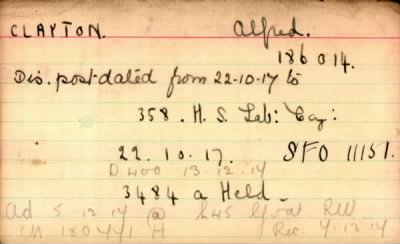 CLAYTON. Alfred.
186014.
Dis. post-dated from 22-10-17 to
358. H. S. Lab: Coy:
22. 10. 17. SFO 11151.
D400 13.12.17
3484 a Held
ad 5.12.17 @
Rec. 4-12-17